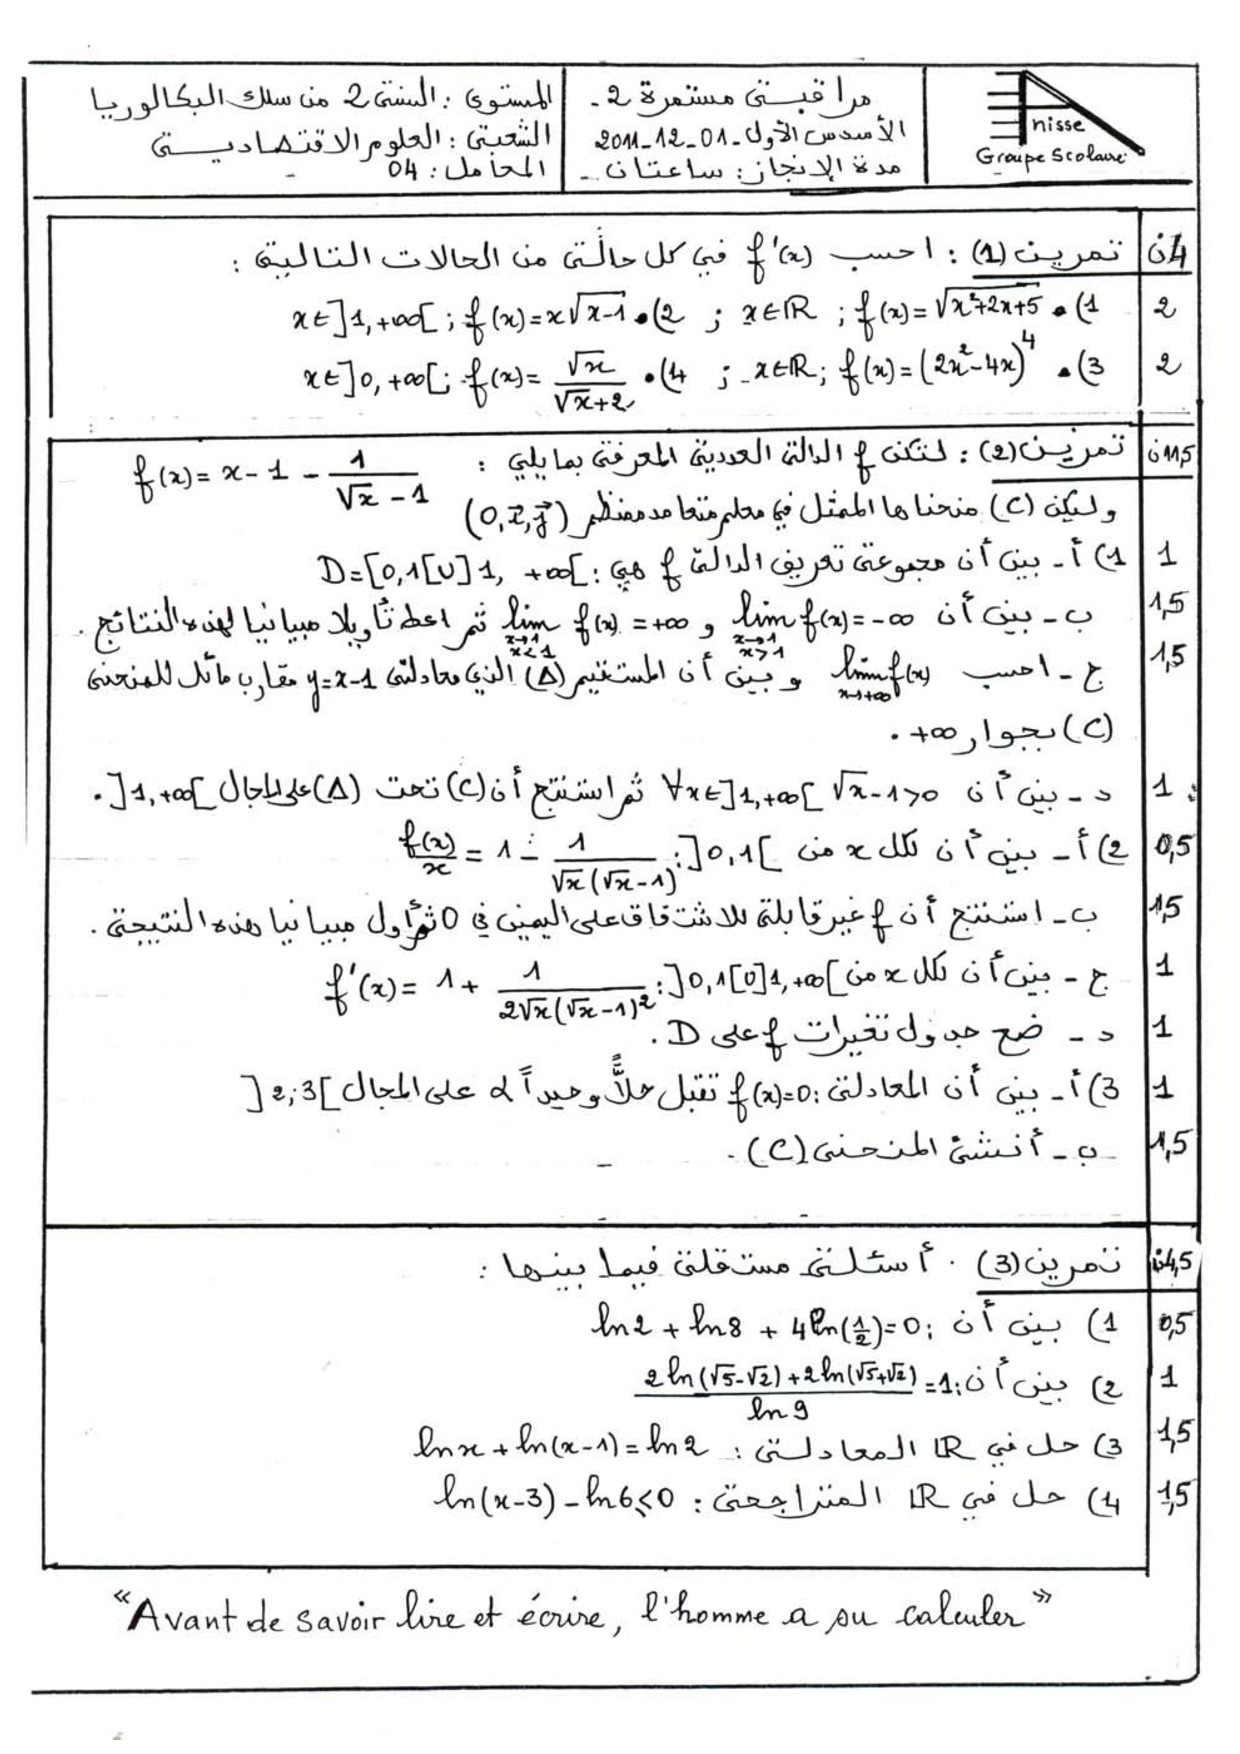 المستوى : السنة 2 من سلك البكالوريا
الشعبة : العلوم الاقتصادية
المعامل : 04
مراقبة مستمرة 2 -
الأسدس الأول - 01 - 12 - 2011
مدة الإنجاز : ساعتان -
Anisse
Groupe Scolaire
4ن تمرين (1) : احسب f'(x) في كل حالة من الحالات التالية :
2 1) • f(x)=√(x²+2x+5) ; x∈ℝ ; 2) • f(x)=x√(x-1) ; x∈]1,+∞[
2 3) • f(x)=(2x²-4x)⁴ ; x∈ℝ ; 4) • f(x)=√x/(√x+2) ; x∈]0,+∞[
11,5ن تمرين (2) : لتكن f الدالة العددية المعرفة بما يلي : f(x)= x-1 - 1/(√x-1)
وليكن (C) منحناها الممثل في معلم متعامد ممنظم (O,i⃗,j⃗)
1 1) أ - بين أن مجموعة تعريف الدالة f هي : D=[0,1[∪]1,+∞[
1,5 ب - بين أن lim f(x)=-∞ (x→1, x>1) و lim f(x)=+∞ (x→1, x<1) ثم اعط تأويلا مبيانيا لهذه النتائج .
1,5 ج - احسب lim f(x) (x→+∞) وبين أن المستقيم (Δ) الذي معادلته y=x-1 مقارب مائل للمنحنى
(C) بجوار +∞ .
1 د - بين أن ∀x∈]1,+∞[ √x-1>0 ثم استنتج أن (C) تحت (Δ) على المجال ]1,+∞[ .
0,5 2) أ - بين أن لكل x من ]0,1[ : f(x)/x = 1 - 1/(√x(√x-1))
1,5 ب - استنتج أن f غير قابلة للاشتقاق على اليمين في 0 ثم أول مبيانيا هذه النتيجة .
1 ج - بين أن لكل x من ]0,1[∪]1,+∞[ : f'(x)= 1 + 1/(2√x(√x-1)²)
1 د - ضع جدول تغيرات f على D .
1 3) أ - بين أن المعادلة : f(x)=0 تقبل حلاًّ وحيداً α على المجال ]2;3[
1,5 ب - أنشئ المنحنى (C) .
4,5ن تمرين (3) . أسئلة مستقلة فيما بينها :
0,5 1) بين أن : ln2 + ln8 + 4ln(1/2)=0
1 2) بين أن : (2ln(√5-√2)+2ln(√5+√2))/ln9 =1
1,5 3) حل في ℝ المعادلة : lnx + ln(x-1) = ln2
1,5 4) حل في ℝ المتراجحة : ln(x-3) - ln6 ≤ 0
"Avant de savoir lire et écrire, l'homme a su calculer"